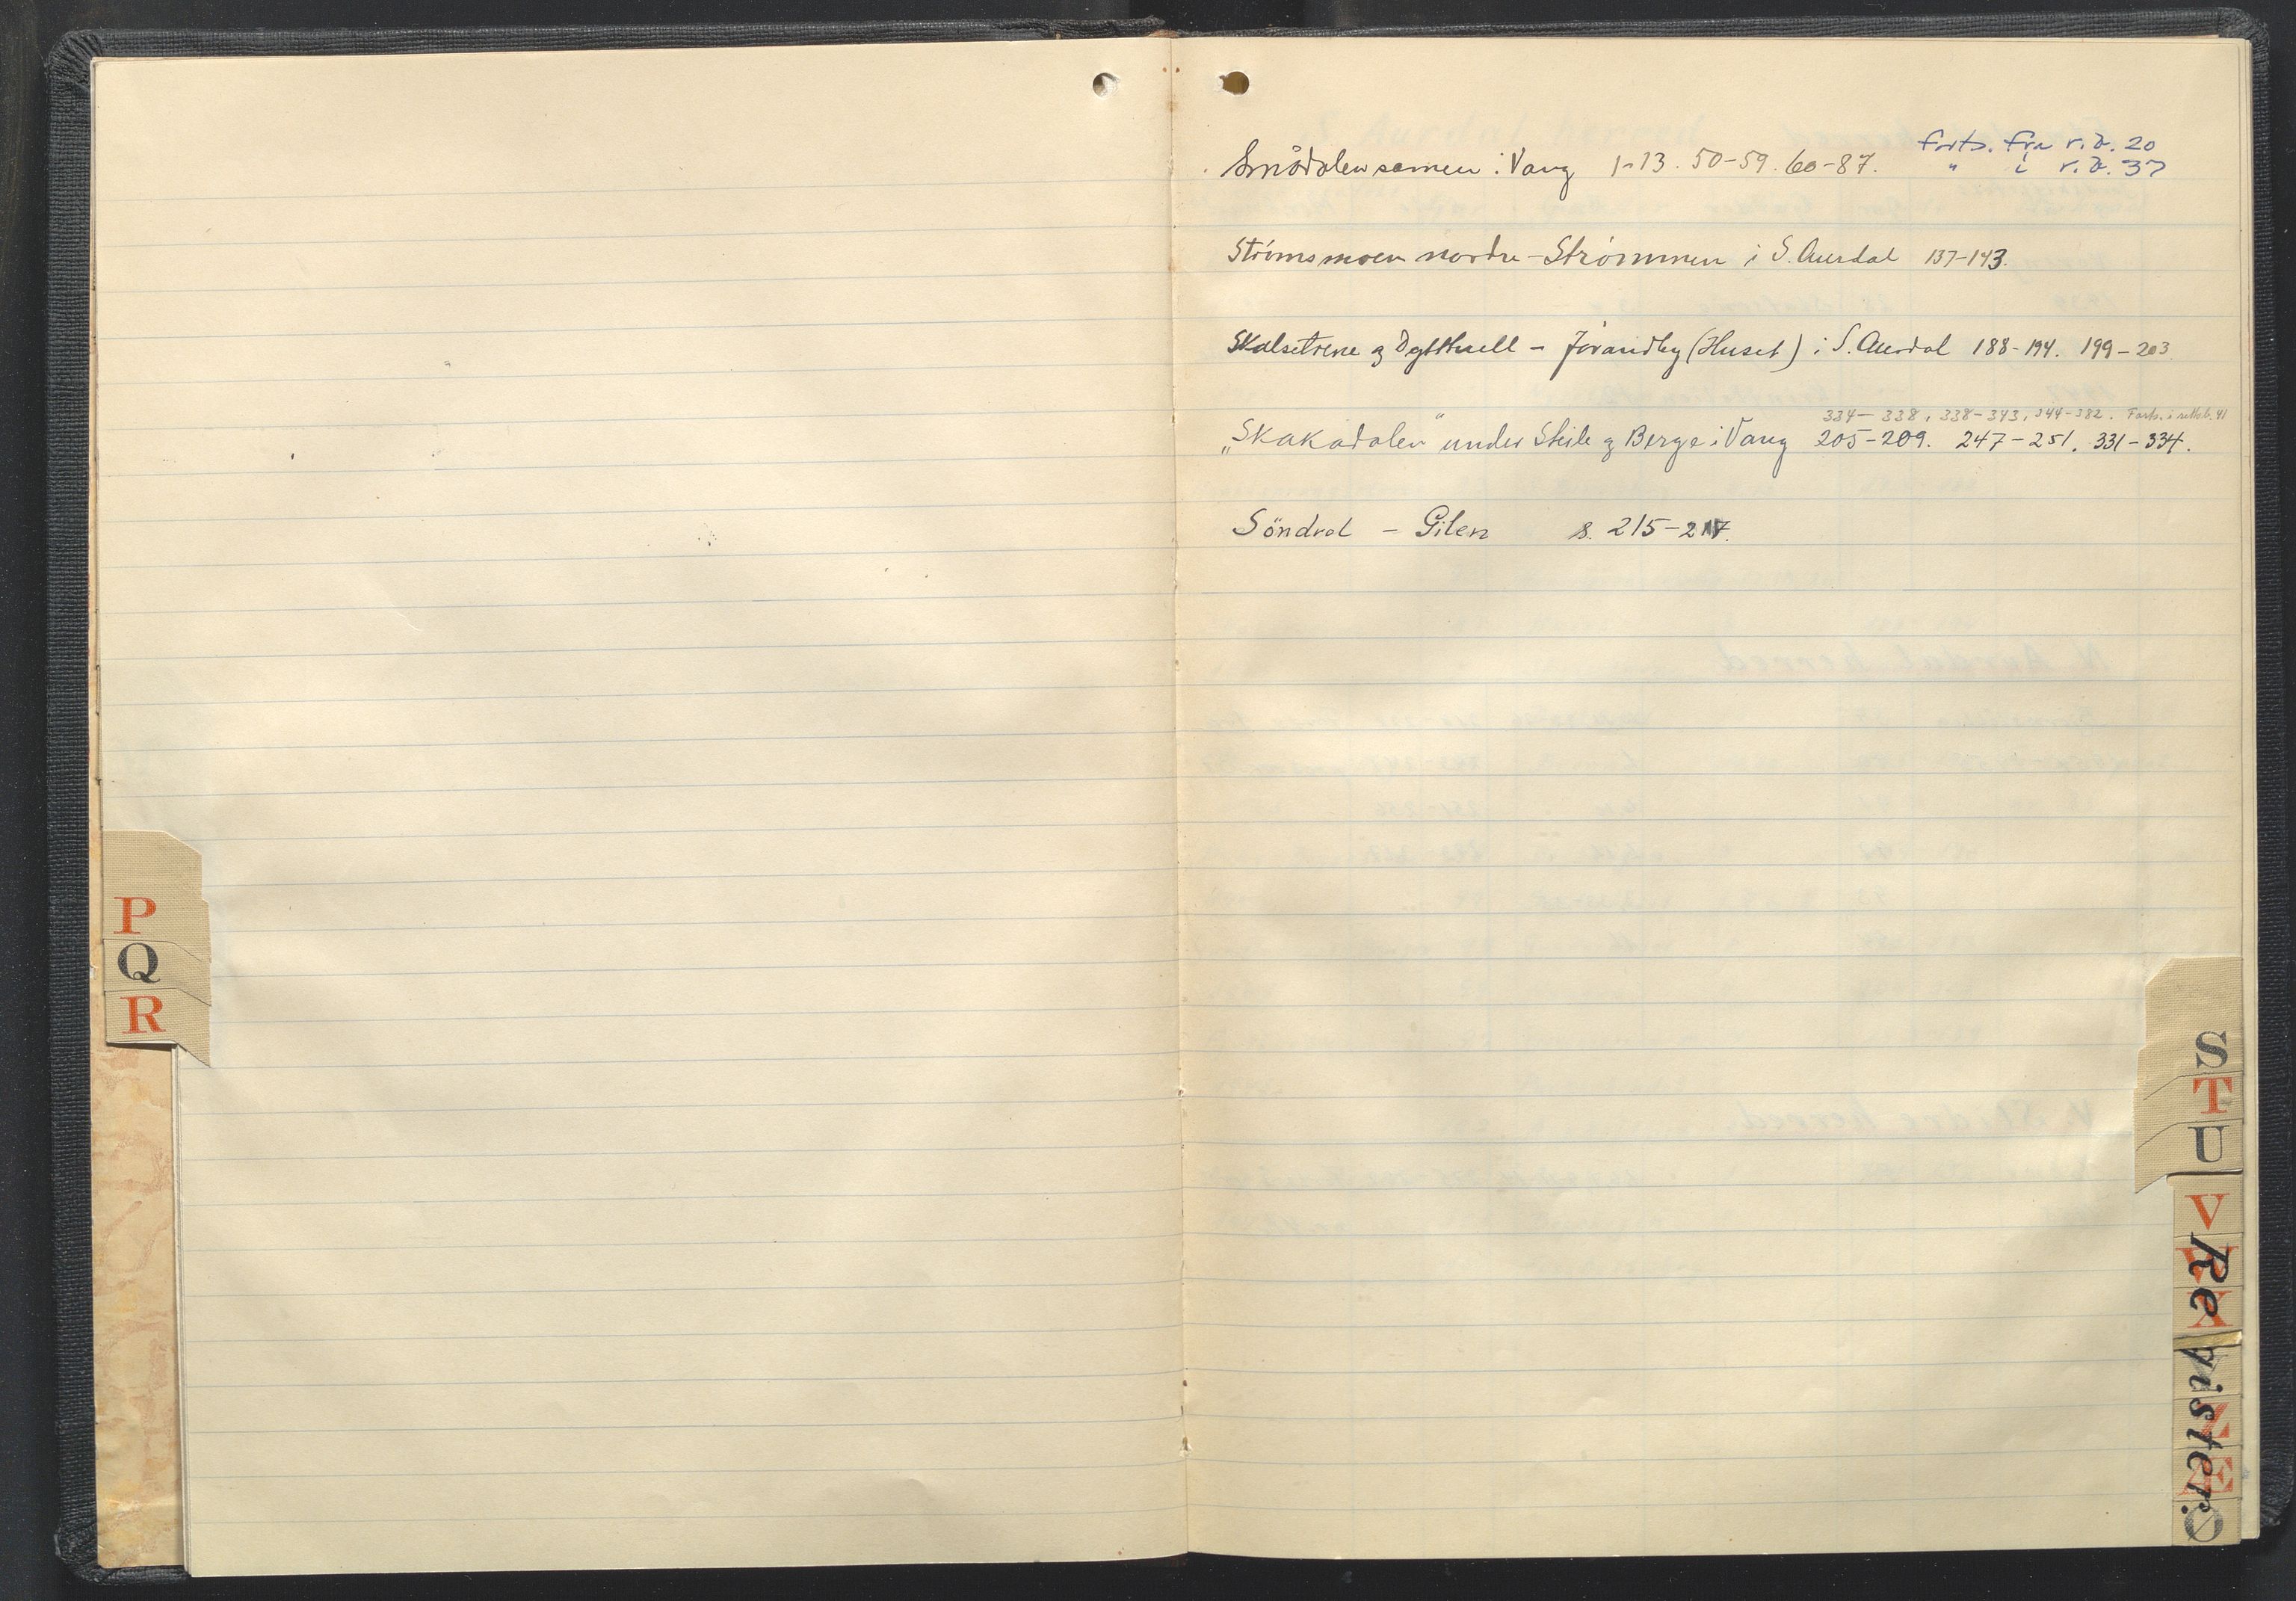 Smådalen sameie i Vang 1-13. 50-59. 60-87. forts. fra r.d. 20
" i r.d. 37
Strömsmoen nordre - Strömmen i S. Aurdal 137-143.
Skalsetrene og - (Huset) i S. Aurdal 188-194. 199-203
334-338, 338-343, 344-382. Forts. i rettsb. 41
"Skakadalen" under Steile og Berge i Vang 205-209. 247-251. 331-334.
Söndrol - Gilen s. 215-217.
P
Q
R
S
T
U
V
W
X
Z
Æ
Ø
Register.